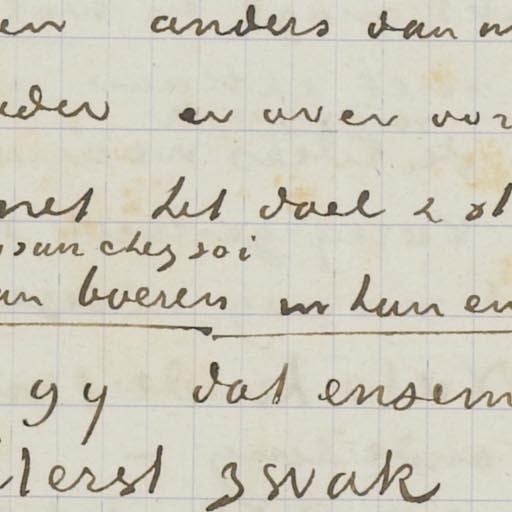 en anders dan m
uder er over vor
met het doel z ol
ysan chez soi
an boeren in hun en
gy dat ensem
iterst zwak